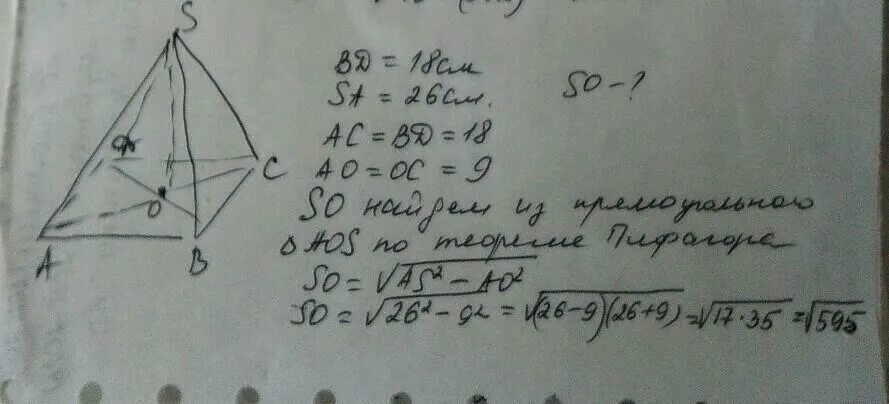 S
BD = 18 см
SA = 26 см.
SO - ?
AC = BD = 18
AO = OC = 9
C
O
SO найдем из прямоугольного
A
B
△AOS по теореме Пифагора
SO = √AS² - AO²
SO = √26² - 9² = √(26-9)(26+9) = √17·35 = √595